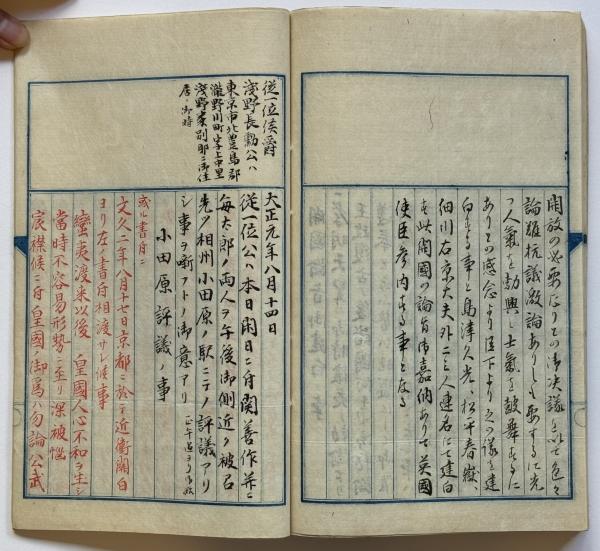 開放の必要なりとの御決議を以て色々
論難抗議激論ありしも要するに先
つ人氣を勃興し士氣を鼓舞するに
ありとの感念より臣下より之の議を建
白する事と島津久光、松平春嶽、
細川右京大夫外二三人連名にて建白
し此開國の論旨御嘉納ありて英國
使臣参内する事となる
従一位侯爵
浅野長勲公ハ
東京市北豊島郡
瀧野川町字上中里
浅野家別邸ニ御住
居ノ御時
大正元年八月十四日
従一位公ハ本日閑日ニ付関善作并ニ
毎太郎ノ両人ヲ午後御側近ク被召
先ツ相州小田原ノ駅ニテノ評議アリ
シ事ヲ噺アトノ御意アリ
小田原評議ノ事
或ル書付ニ
文久二年八月十七日京都ニ於テ近衛関白
ヨリ左ノ書付相渡サレ候事
蠻夷渡来以後 皇國人心不和ヲ生シ
當時不容易形勢ニ至リ深被惱
宸襟候ニ付 皇國ノ御為ハ勿論公武